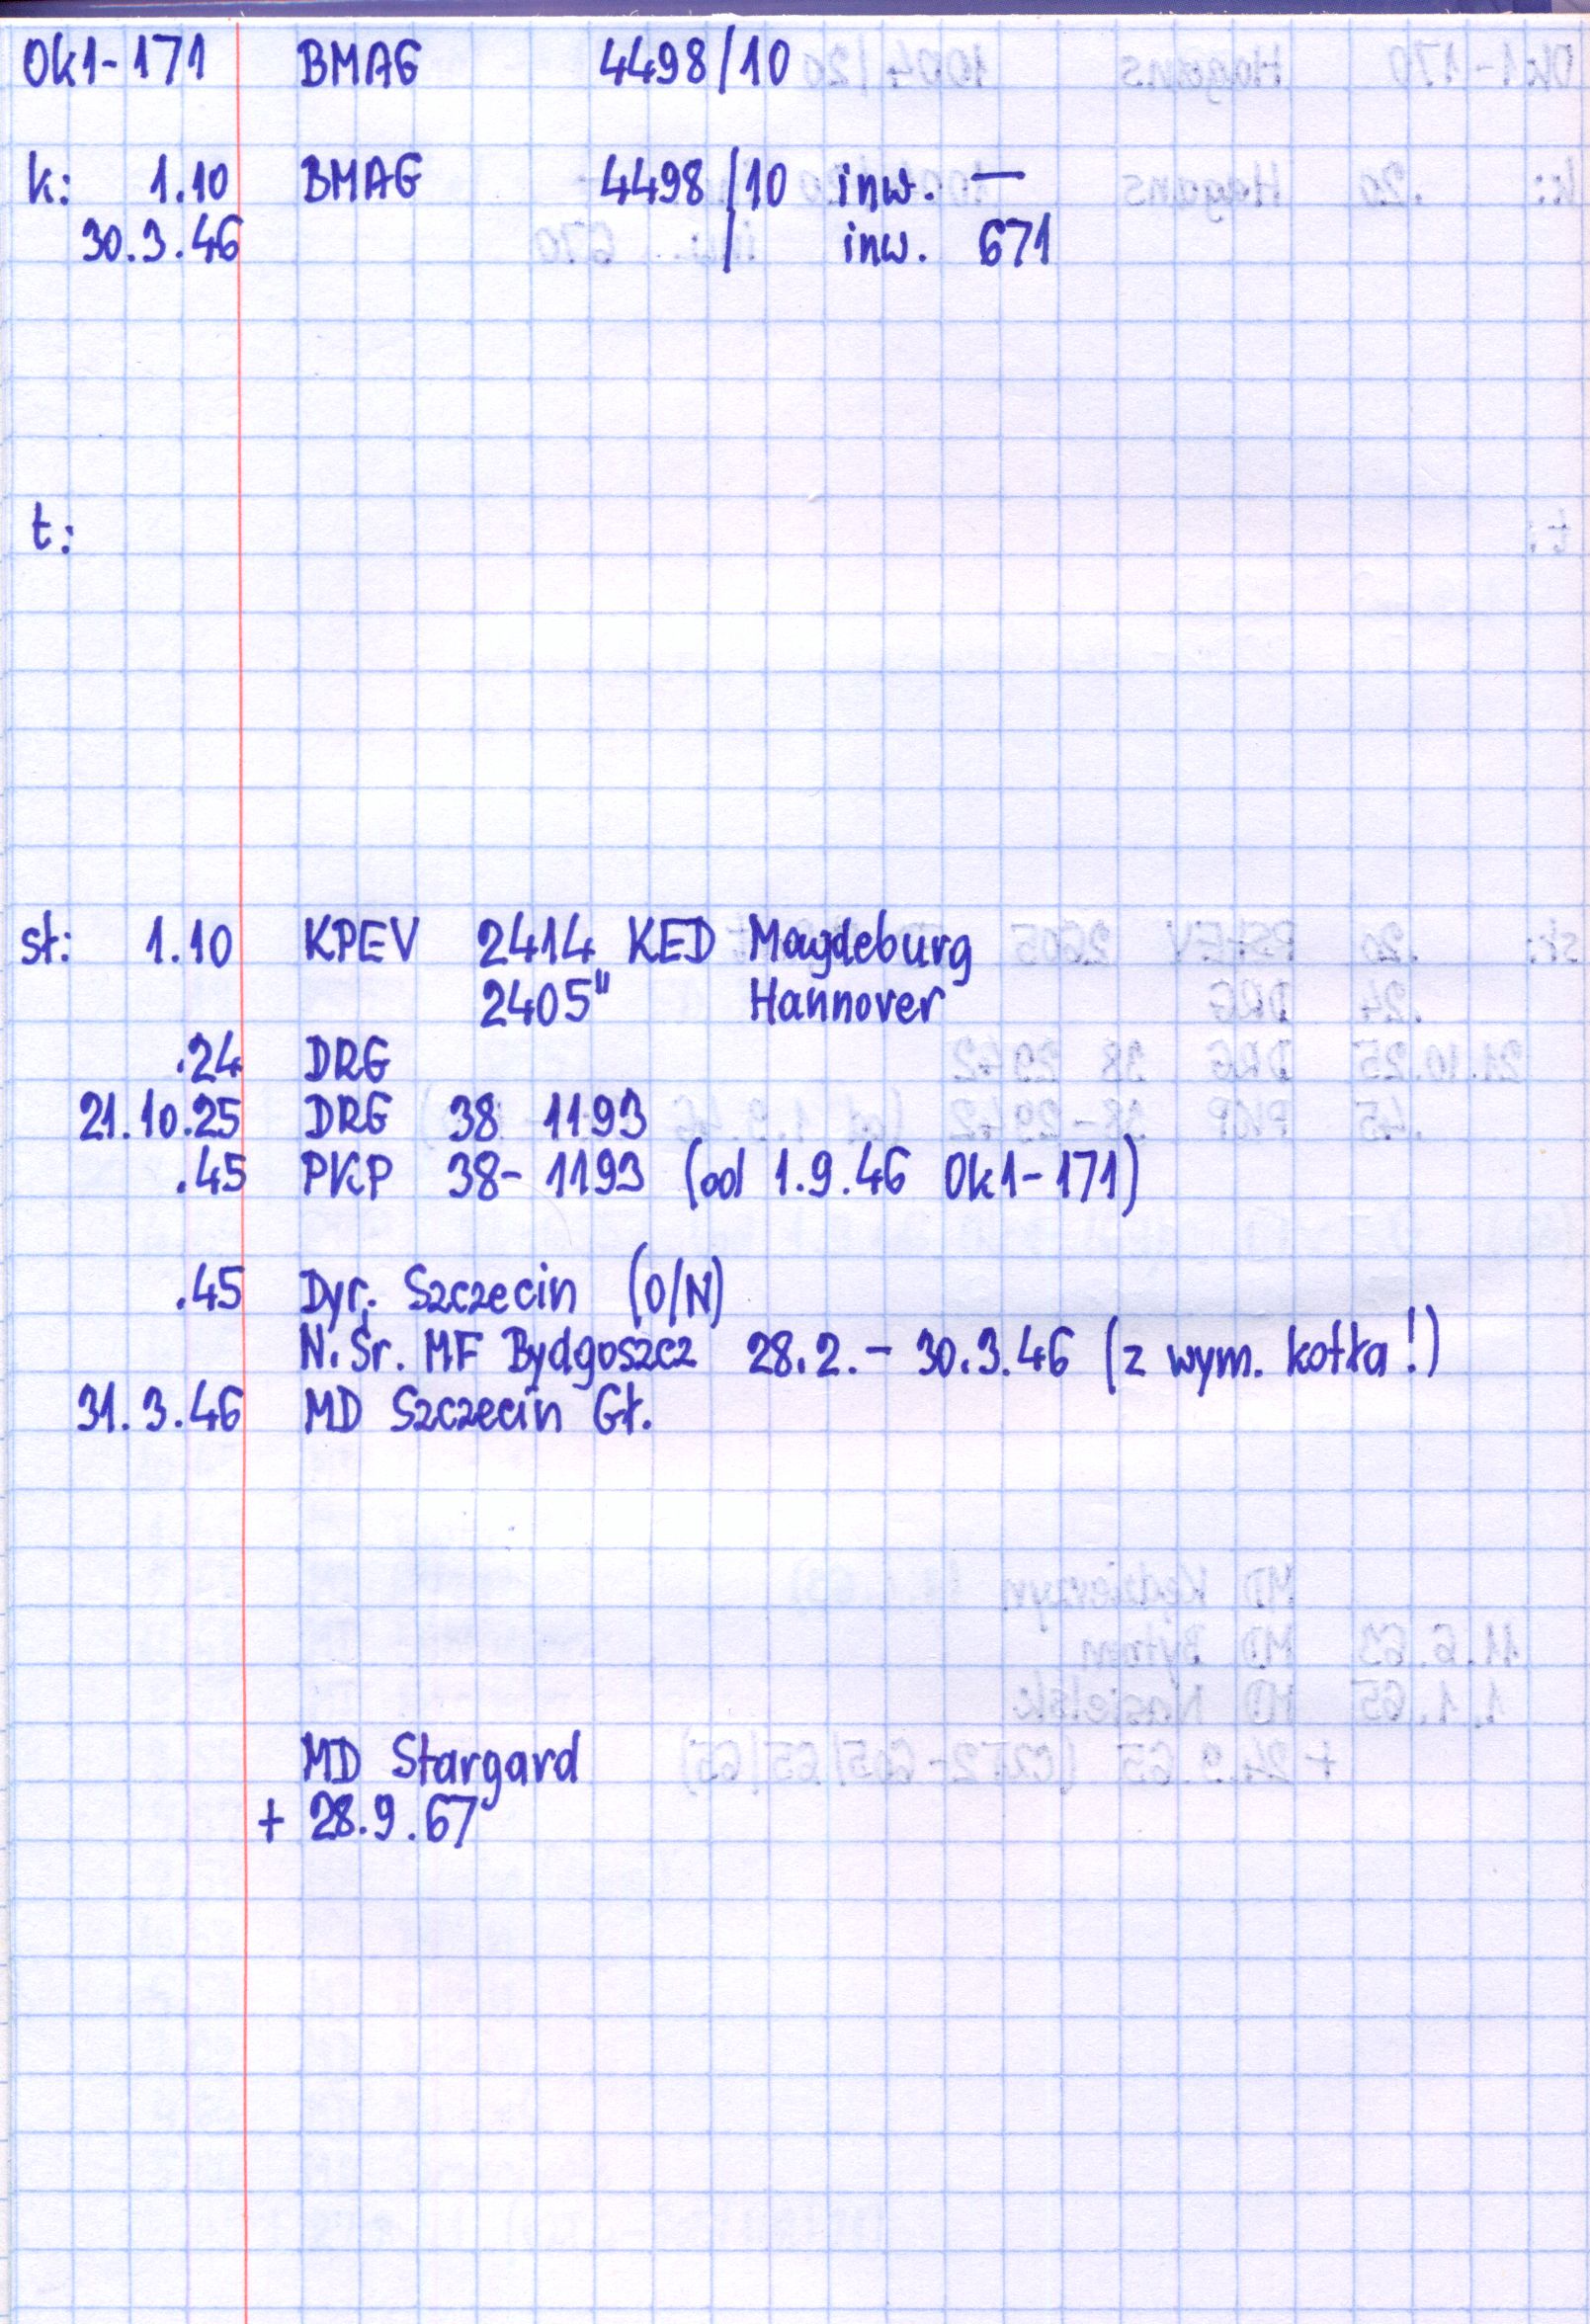 Ok1-171 BMAG 4498/10
k: 1.10 BMAG 4498/10 inw. —
30.3.46 / inw. 671
t:
st: 1.10 KPEV 2414 KED Magdeburg
2405" Hannover
.24 DRG
21.10.25 DRG 38 1193
.45 PKP 38-1193 (od 1.9.46 Ok1-171)
.45 Dyr. Szczecin (O/N)
N.Śr. MF Bydgoszcz 28.2.-30.3.46 (z wym. kotła!)
31.3.46 MD Szczecin Gł.
MD Stargard
+ 28.9.67